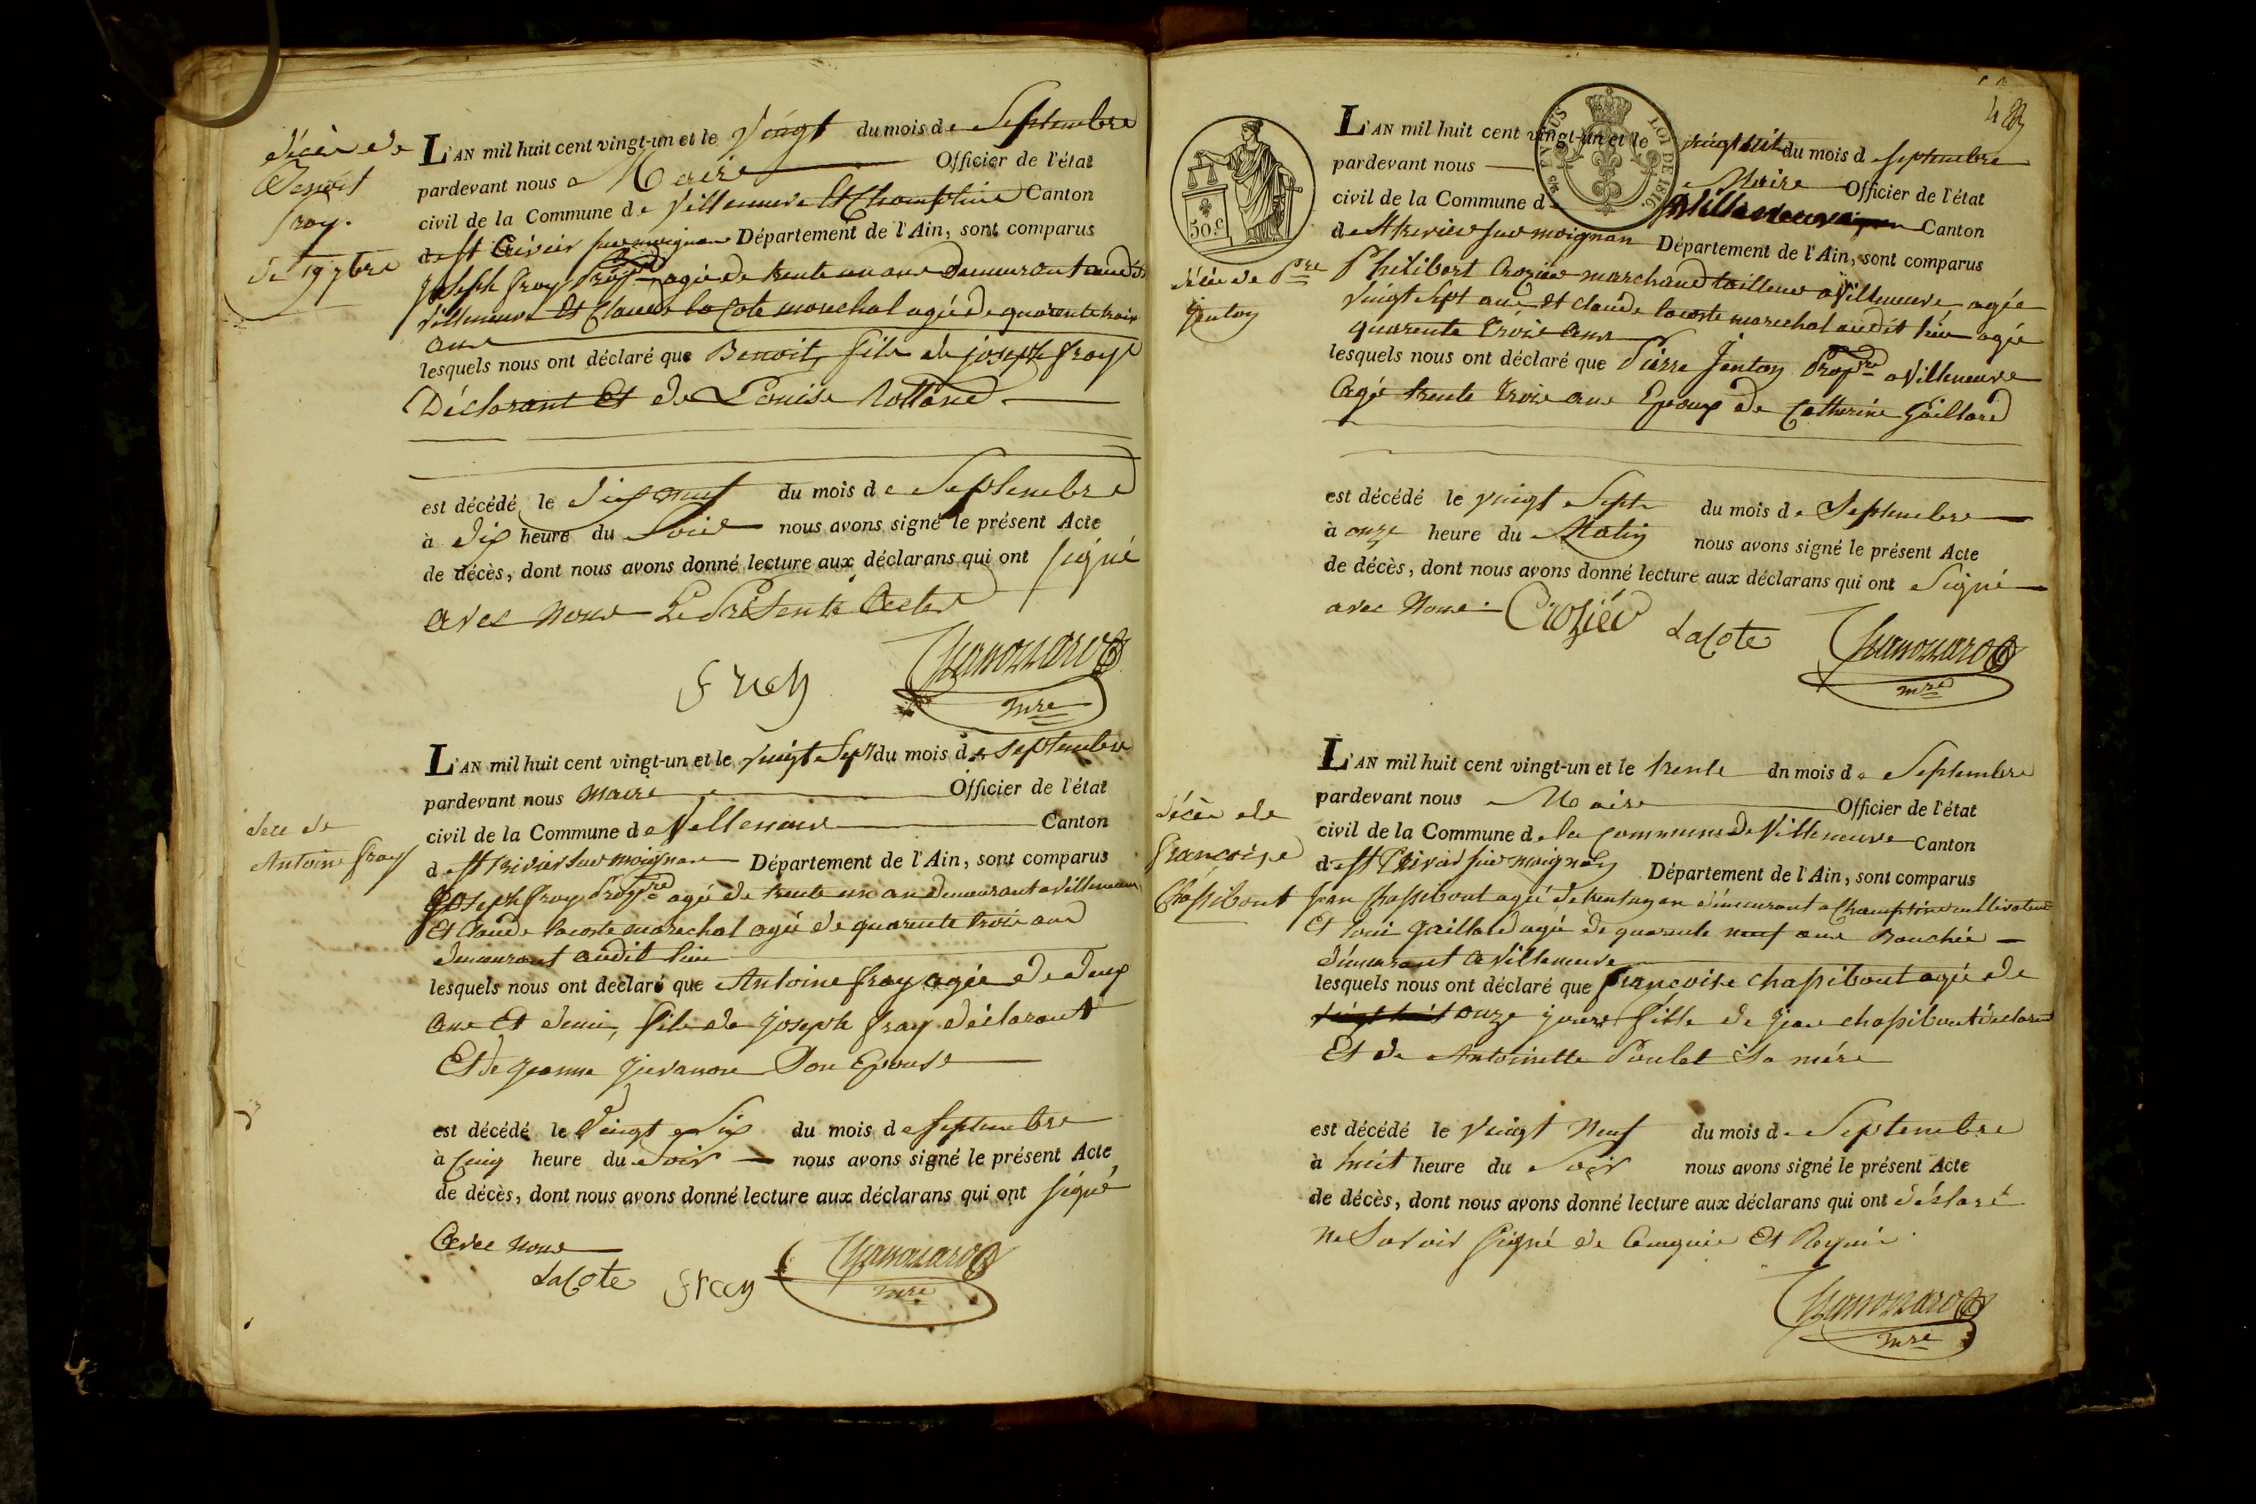 décès de
Benoit
fray.
de 19 7bre
L'AN mil huit cent vingt-un et le vingt du mois de Septembre
pardevant nous Maire Officier de l'état
civil de la Commune de Villeneuve Et Champtein Canton
de st trivier sur moignan Département de l'Ain, sont comparus
joseph fray Prop.re agée de trente un ans Demeurant audit
Villeneuve Et Claude la Cote marechal agé de quarente trois
ans
lesquels nous ont déclaré que Benoit, fils de joseph fray
Déclarant Et de Louise Rolland
est décédé le Dix neuf du mois de Septembre
à Dix heure du Soir nous avons signé le présent Acte
de décès, dont nous avons donné lecture aux déclarans qui ont signé
avec nous Le Présente Acte
fray
mre
dece de
Antoine fray
L'AN mil huit cent vingt-un et le vingt Sept du mois de septembre
pardevant nous maire Officier de l'état
civil de la Commune de Villeneuve Canton
de st trivier sur moignan Département de l'Ain, sont comparus
joseph fray Prop.re agé de trente un an demeurant a Villeneuve
Et Claude lacoste marechal agé de quarente trois ans
demeurant audit lieu
lesquels nous ont declaré que Antoine fray agée de deux
ans Et demi, fils de joseph fray déclarant
Et de jeanne Son Epouse
est décédé le Vingt Six du mois de septembre
à Cinq heure du Soir nous avons signé le présent Acte
de décès, dont nous avons donné lecture aux déclarans qui ont signé
Avec nous
LaCote fray
mre
50 c.
LOI DE 1816.
décée de P.re
Jentoy
L'AN mil huit cent vingt-un et le vingt huit du mois de septembre
pardevant nous Maire Officier de l'état
civil de la Commune de Villeneuve Canton
de st trivier sur moignan Département de l'Ain, sont comparus
Philibert Crozier marchand tailleur a Villeneuve, agée
vingt Sept ans, et claude lacoste marechal audit lieu agée
quarente trois ans
lesquels nous ont déclaré que Pierre Jentoy Prop.re a Villeneuve
Agé trente trois ans Epoux de Catherine Gaillard
est décédé le vingt Sept du mois de Septembre
à onze heure du Matin nous avons signé le présent Acte
de décès, dont nous avons donné lecture aux déclarans qui ont Signé
avec Nous. Crozier LaCote
mre
décès de
francoise
Chassibout
L'AN mil huit cent vingt-un et le trente dn mois de Septembre
pardevant nous Maire Officier de l'état
civil de la Commune de la Commune de Villeneuve Canton
de st trivier sur moignan Département de l'Ain, sont comparus
jean chassibout agé de demeurant a Champtein cultivateur
Et loui gaillard agé de quarente neuf ans Bouchée
démeurant a Villeneuve
lesquels nous ont déclaré que françoise chassibout agée de
onze jours fille de jean chassibout déclarant
Et de Antoinette Poulet Sa mére
est décédé le vingt Neuf du mois de Septembre
à huit heure du Soir nous avons signé le présent Acte
de décès, dont nous avons donné lecture aux déclarans qui ont déclaré
Ne Savoir signé de Et
mre